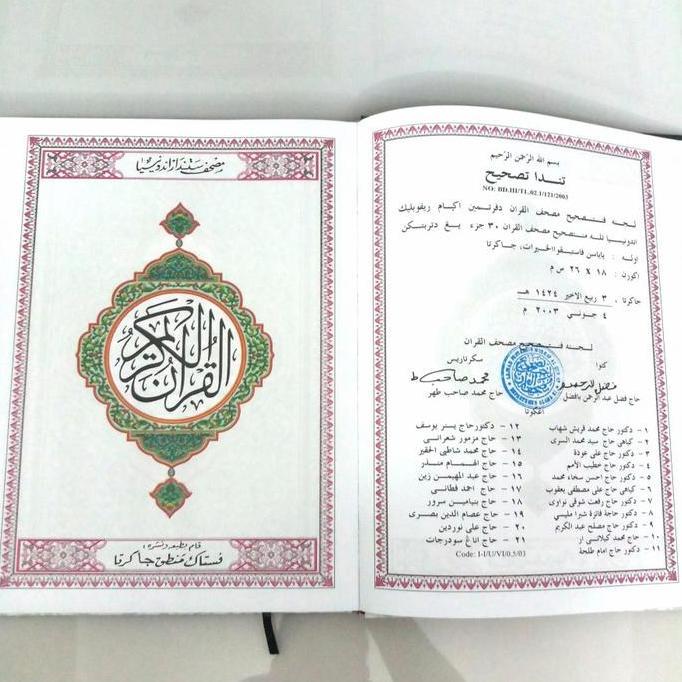 مصحف ستاندار اندونيسيا
القرآن الكريم
قام بطبعه ونشره :
فستاك منطق جاكرتا
بسم الله الرحمن الرحيم
تندا تصحيح
NO: BD.III/TL.02.1/121/2003
لجنه فنتصحيح مصحف القران دفرتمين اڬام ريفوبليك
اندونيسيا تله منتصحيح مصحف القران ٣٠ جزء يڠ دتربتكن
اوله : ياياسن فاستبقوا الخيرات، جاكرتا
اكورن : ١٨ X ٢٦ س م
جاكرتا ، ٣ ربيع الاخير ١٤٢٤ هـ
٤ جوني ٢٠٠٣ م
لجنه فنتصحيح مصحف القران
كتوا
سكرتاريس
حاج فضل عبد الرحمن بافضل
حاج محمد صاحب طهر
اڠڬوتا
١ – دكتور حاج محمد قريش شهاب
٢ – كياهي حاج سيد محمد السرى
٣ – دكتور حاج على عودة
٤ – دكتور حاج خطيب الأمم
٥ – دكتور حاج احسن سخاء محمد
٦ – كياهي حاج على مصطفى يعقوب
٧ – دكتور حاج رفعت شوقي نواوى
٨ – دكتور حاجة فائزة شبرا ملسي
٩ – دكتور حاج مصلح عبد الكريم
١٠ – حاج محمد كيلاني ار
١١ – دكتور حاج امام طلحة
١٢ – دكتور حاج يسنر يوسف
١٣ – حاج مزمور شعرانى
١٤ – حاج محمد شاطبي الحقير
١٥ – حاج الهمام منذر
١٦ – حاج عبد المهيمن زين
١٧ – حاج احمد فطانى
١٨ – حاج بنيامين سرور
١٩ – حاج عصام الدين بصرى
٢٠ – حاج على نوردين
٢١ – حاج اناڠ سودرجات
Code: I-I/U/VI/0.5/03